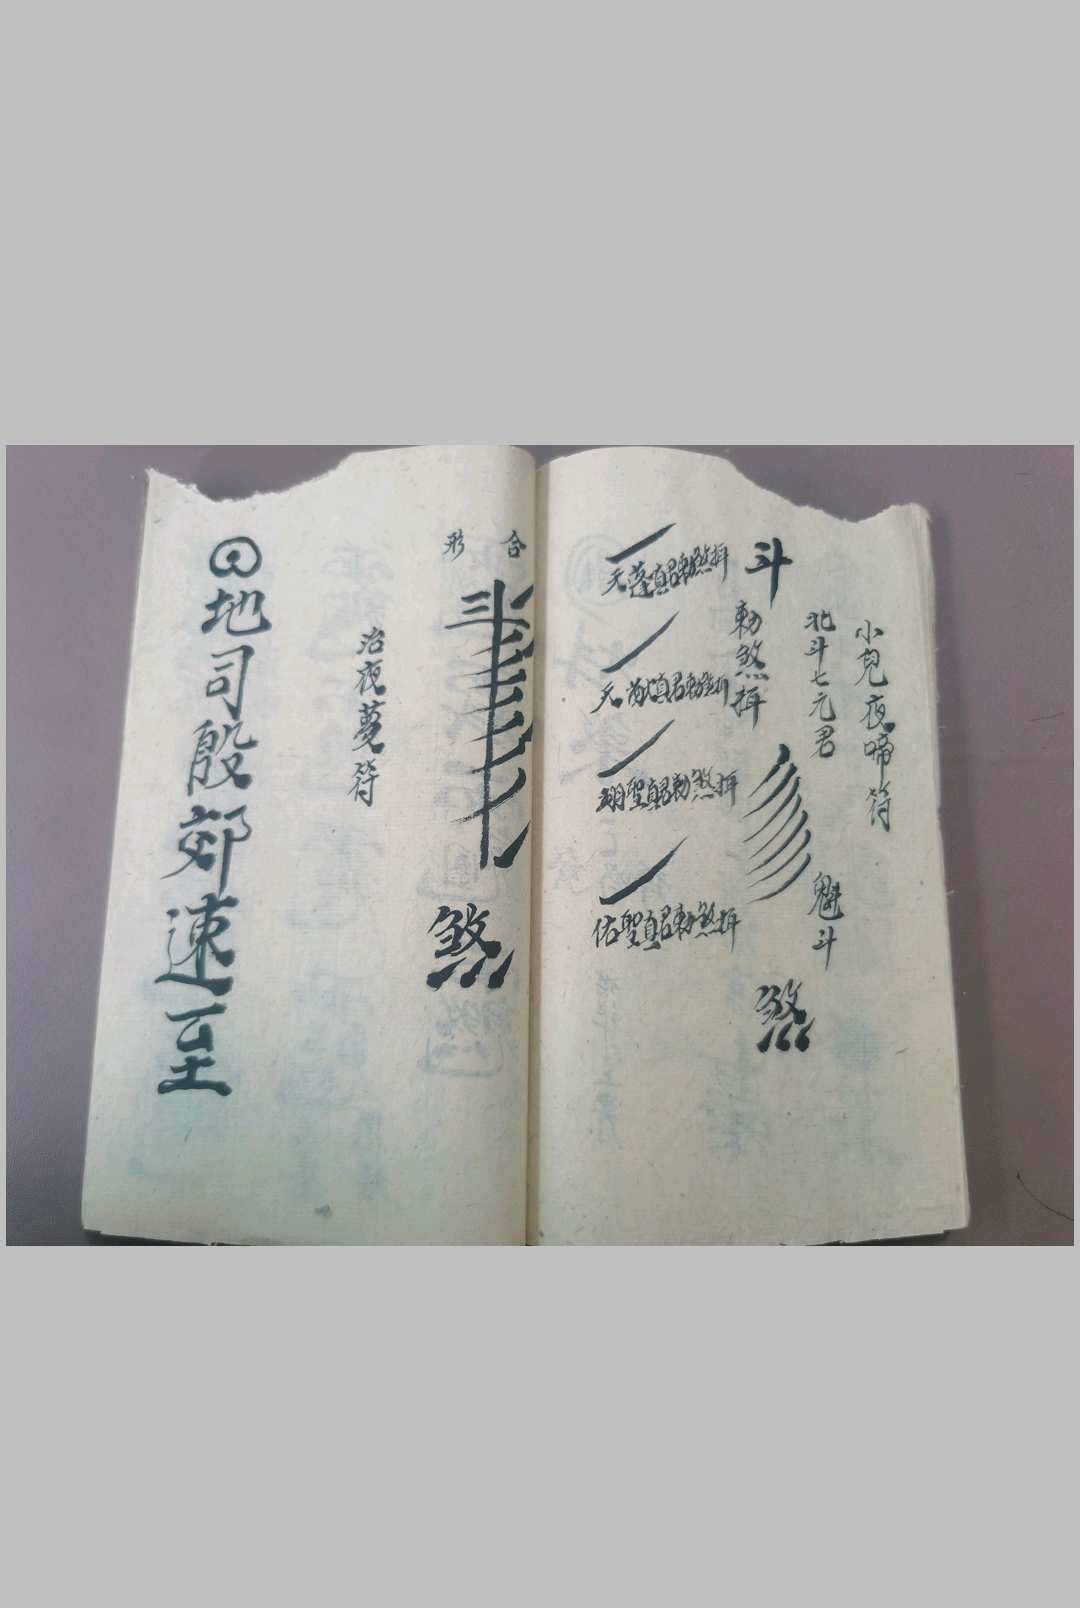 小兒夜啼符
北斗七元君
魁斗
斗
煞
勅煞揖
天蓬真君勅煞揖
天猷真君勅煞揖
翊聖真君勅煞揖
佑聖真君勅煞揖
合形
斗
煞
治夜蔓符
地司殷郊速至